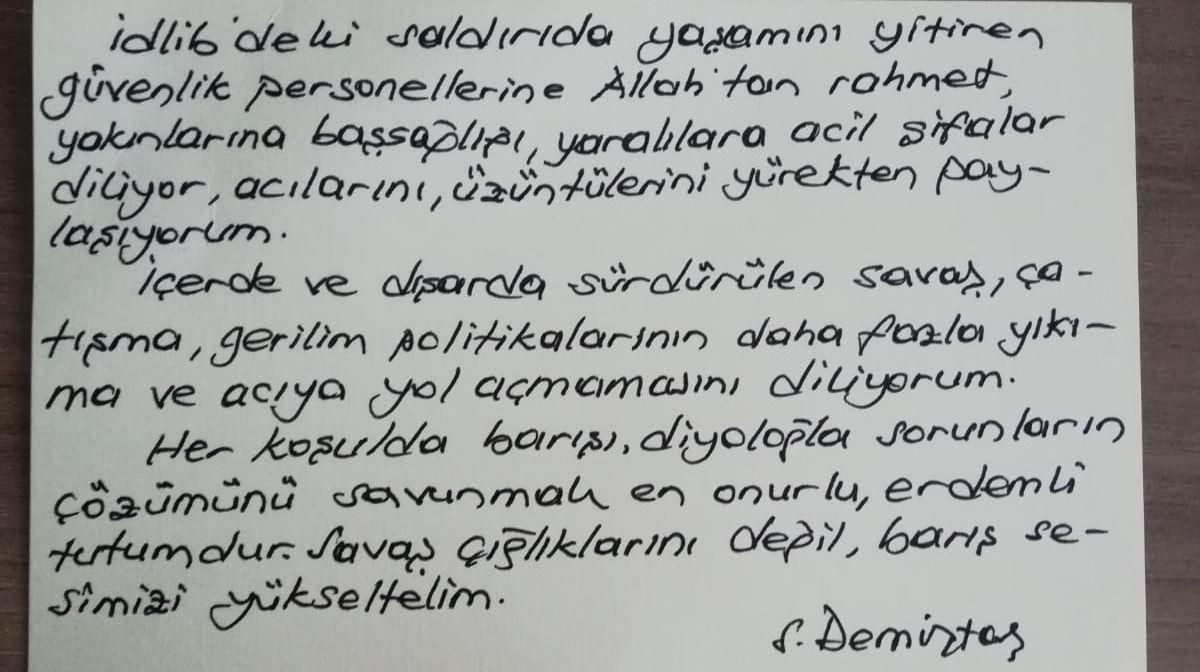 İdlib'deki saldırıda yaşamını yitiren
güvenlik personellerine Allah'tan rahmet,
yakınlarına başsağlığı, yaralılara acil şifalar
diliyor, acılarını, üzüntülerini yürekten pay-
laşıyorum.
İçerde ve dışarda sürdürülen savaş, ça-
tışma, gerilim politikalarının daha fazla yıkı-
ma ve acıya yol açmamasını diliyorum.
Her koşulda barışı, diyoloğla sorunların
çözümünü savunmak en onurlu, erdemli
tutumdur. Savaş çığlıklarını değil, barış se-
simizi yükseltelim.
S. Demirtaş